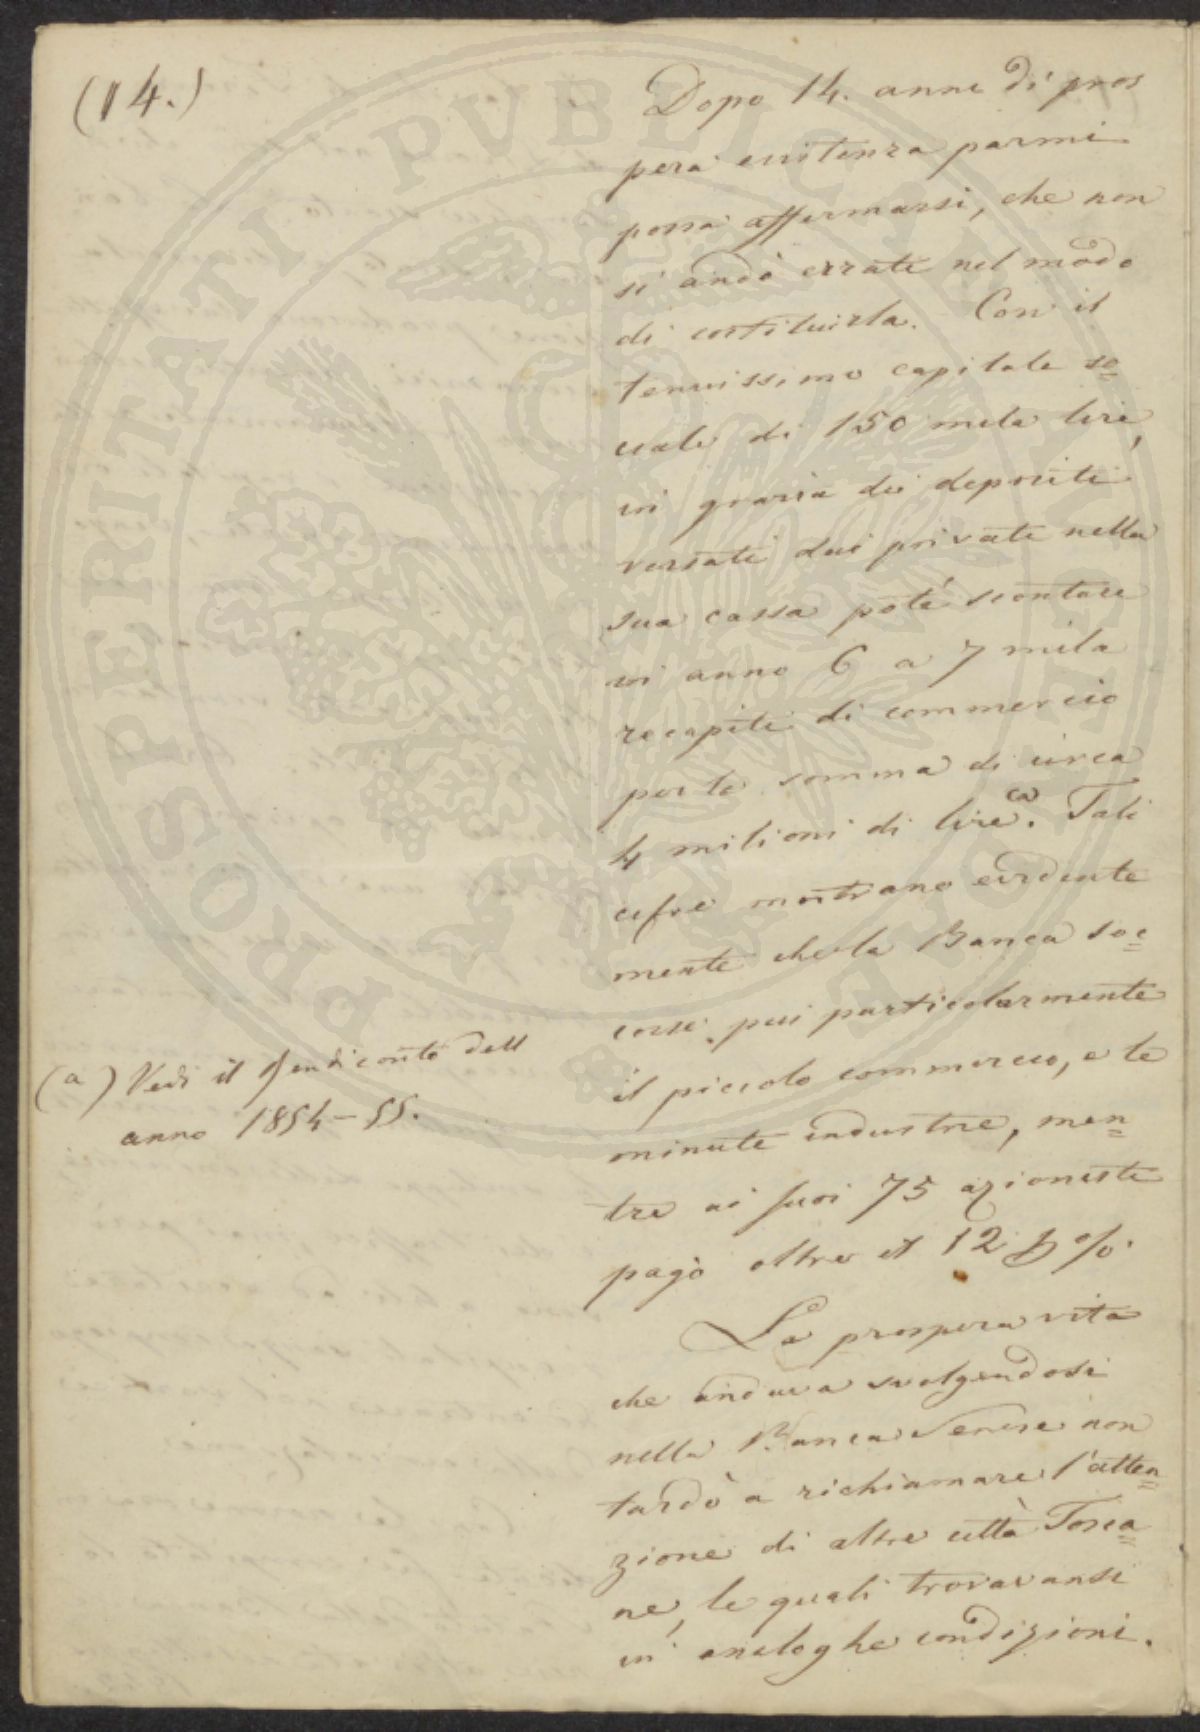 (14.)
Dopo 14. anni di pros
pera esistenza parmi
possa affermarsi, che non
si andò errati nel modo
di costituirla. Con il
tenuissimo capitale so=
ciale di 150 mila lire,
in grazia dei depositi
versati dai privati nella
sua cassa potè scontare
in anno 6 a 7 mila
recapiti di commercio
per la somma di circa
4 milioni di lire (a). Tali
cifre mostrano evidente
mente che la Banca soc=
corse più particolarmente
il piccolo commercio, e le
minute industrie, men=
tre ai suoi 75 azionisti
pagò oltre il 12 p%.
La prospera vita
che andava svolgendosi
nella Banca Senese non
tardò a richiamare l'atten=
zione di altre città Tosca=
ne, le quali trovavansi
in analoghe condizioni.
(a) Vedi il Rendiconto dell
anno 1854-55.
PROSPERITATI PVBLICAE